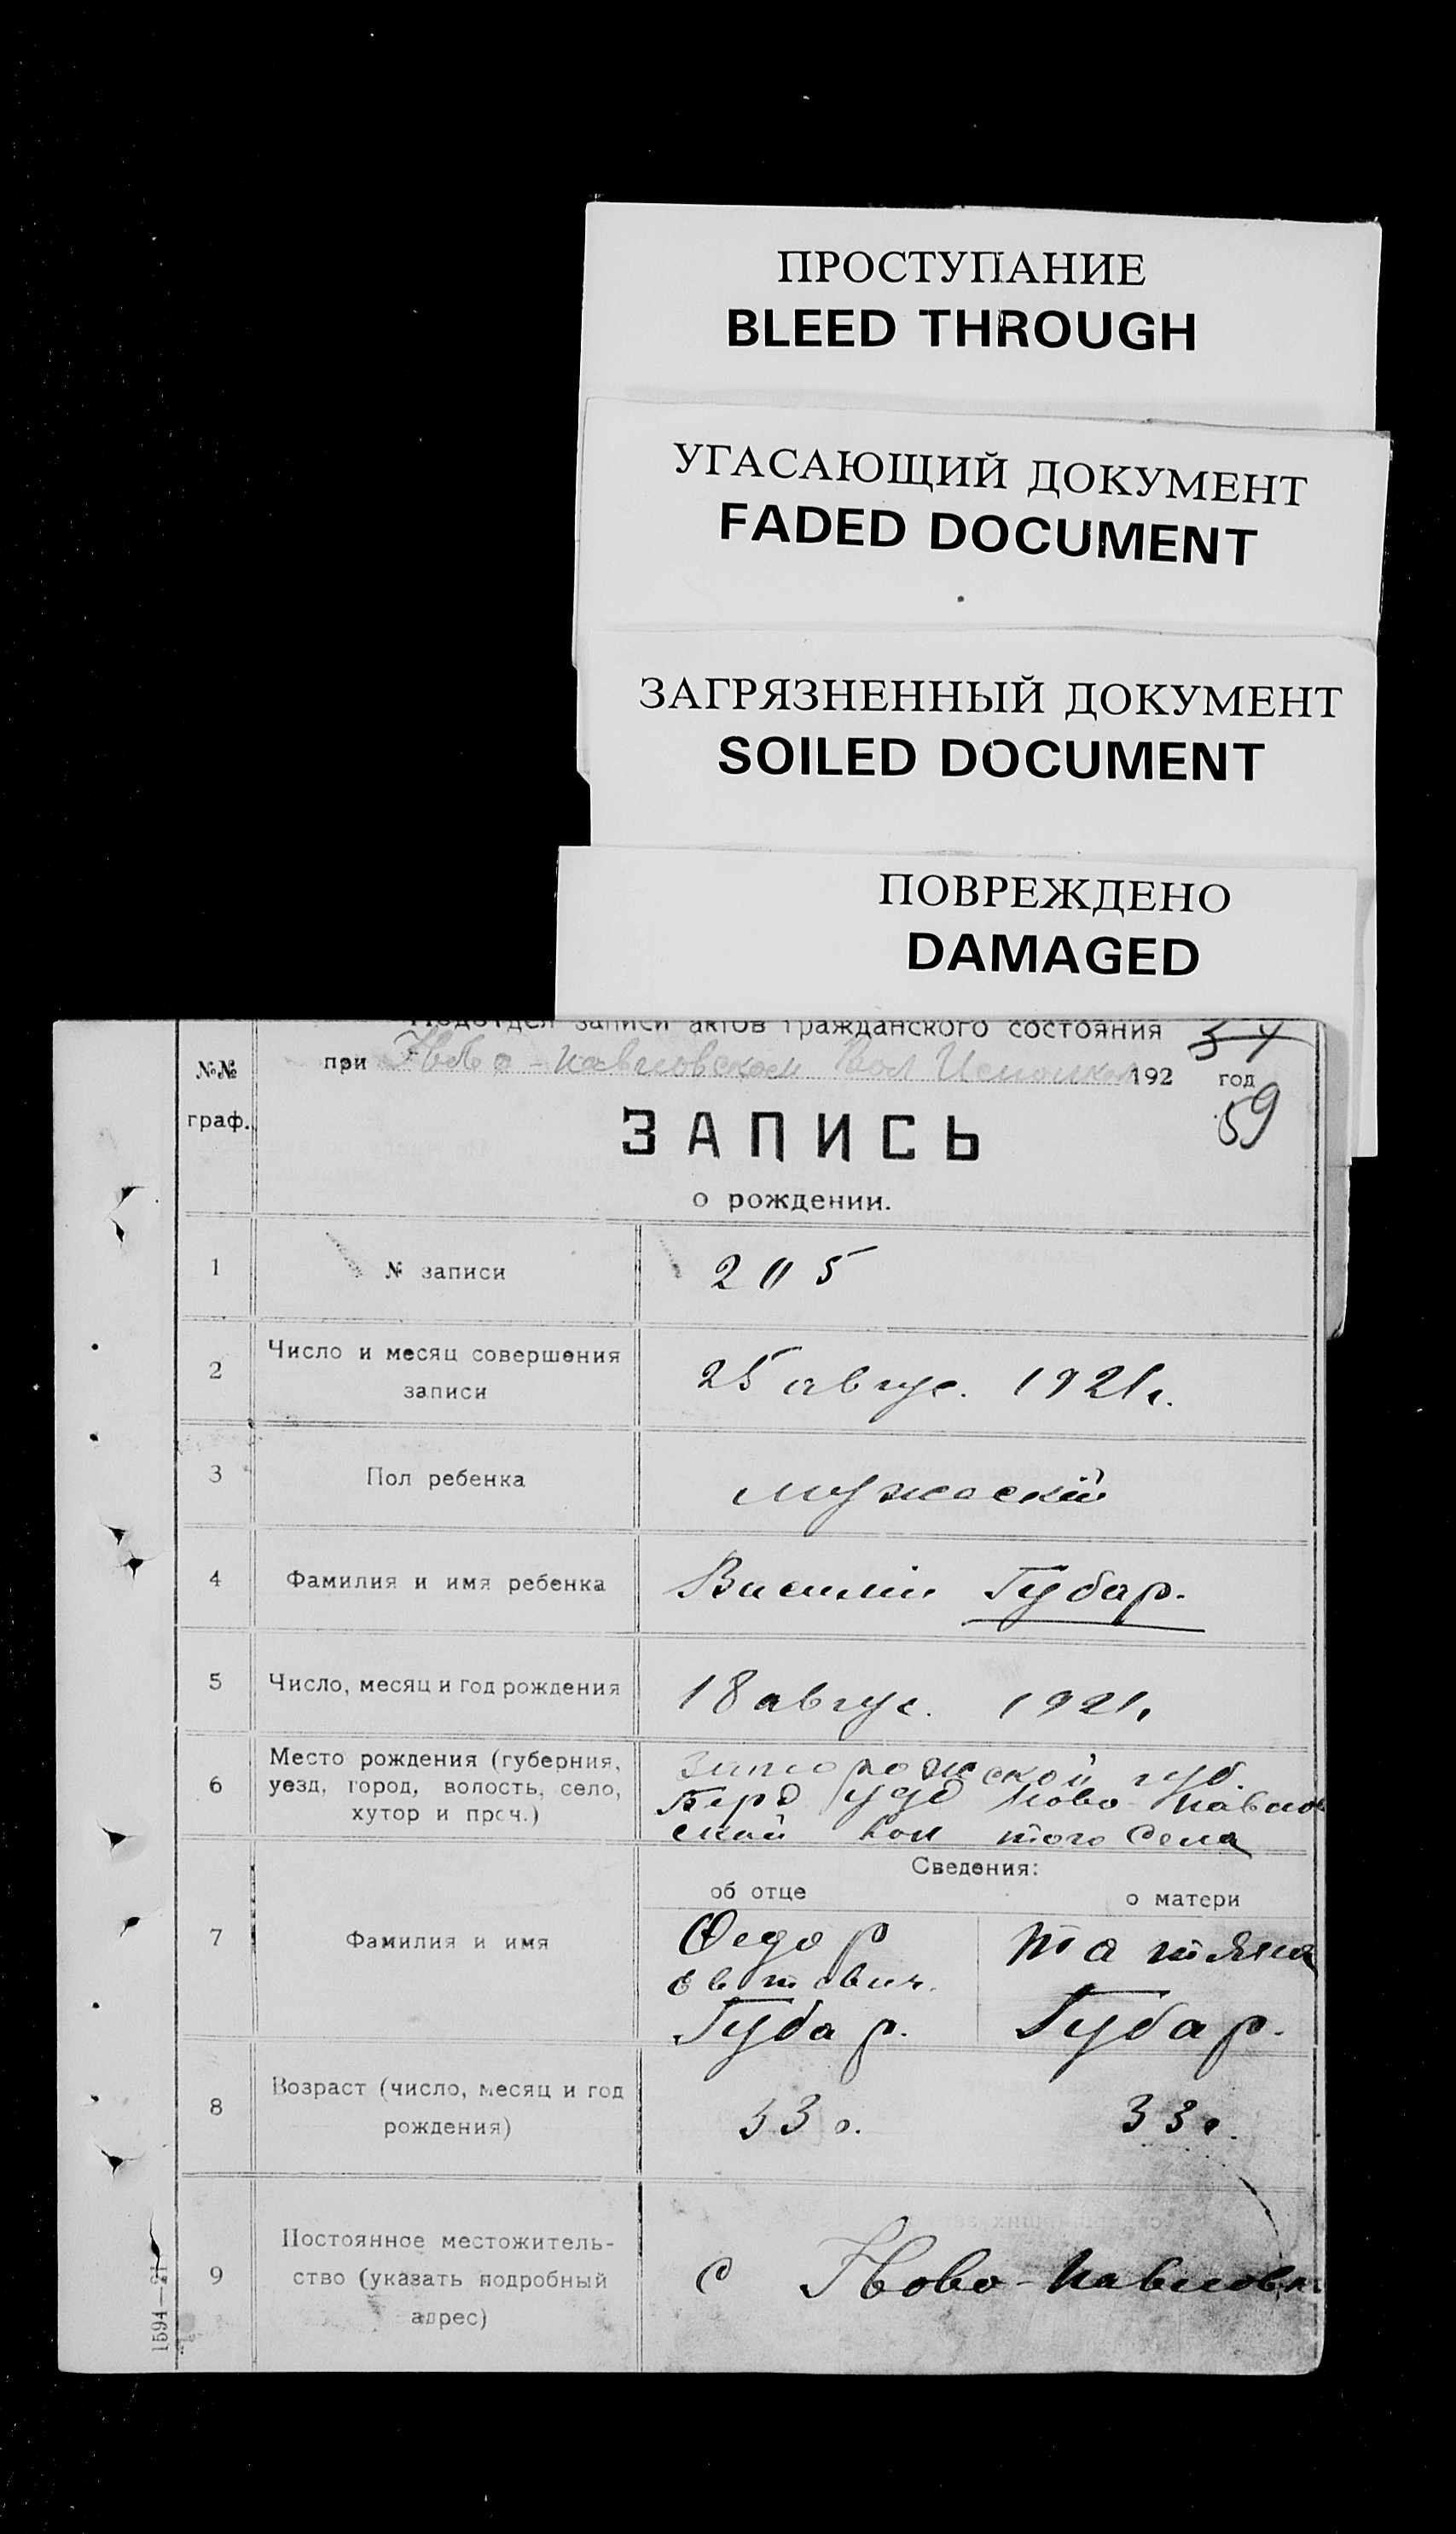 ПРОСТУПАНИЕ
BLEED THROUGH
УГАСАЮЩИЙ ДОКУМЕНТ
FADED DOCUMENT
ЗАГРЯЗНЕННЫЙ ДОКУМЕНТ
SOILED DOCUMENT
ПОВРЕЖДЕНО
DAMAGED
Подотдел записи актов гражданского состояния
при Ново-Павловском Вол Исполком 192 год
59
№№
граф.
ЗАПИСЬ
о рождении.
1 № записи 205
2 Число и месяц совершения
записи
25 авгус. 1921 г.
3 Пол ребенка мужескій
4 Фамилия и имя ребенка Василій Губар.
5 Число, месяц и год рождения 18 авгус. 1921.
6 Место рождения (губерния,
уезд, город, волость, село,
хутор и проч.)
Запорожской губ.
Берд уезд Ново-Павлов
ской вол того села
Сведения:
об отце о матери
7 Фамилия и имя
Федор
Губар.
Татяна
Губар.
8 Возраст (число, месяц и год
рождения)
33 г. 33 г.
9 Постоянное местожитель-
ство (указать подробный
адрес)
с Ново-Павловк
1594—21